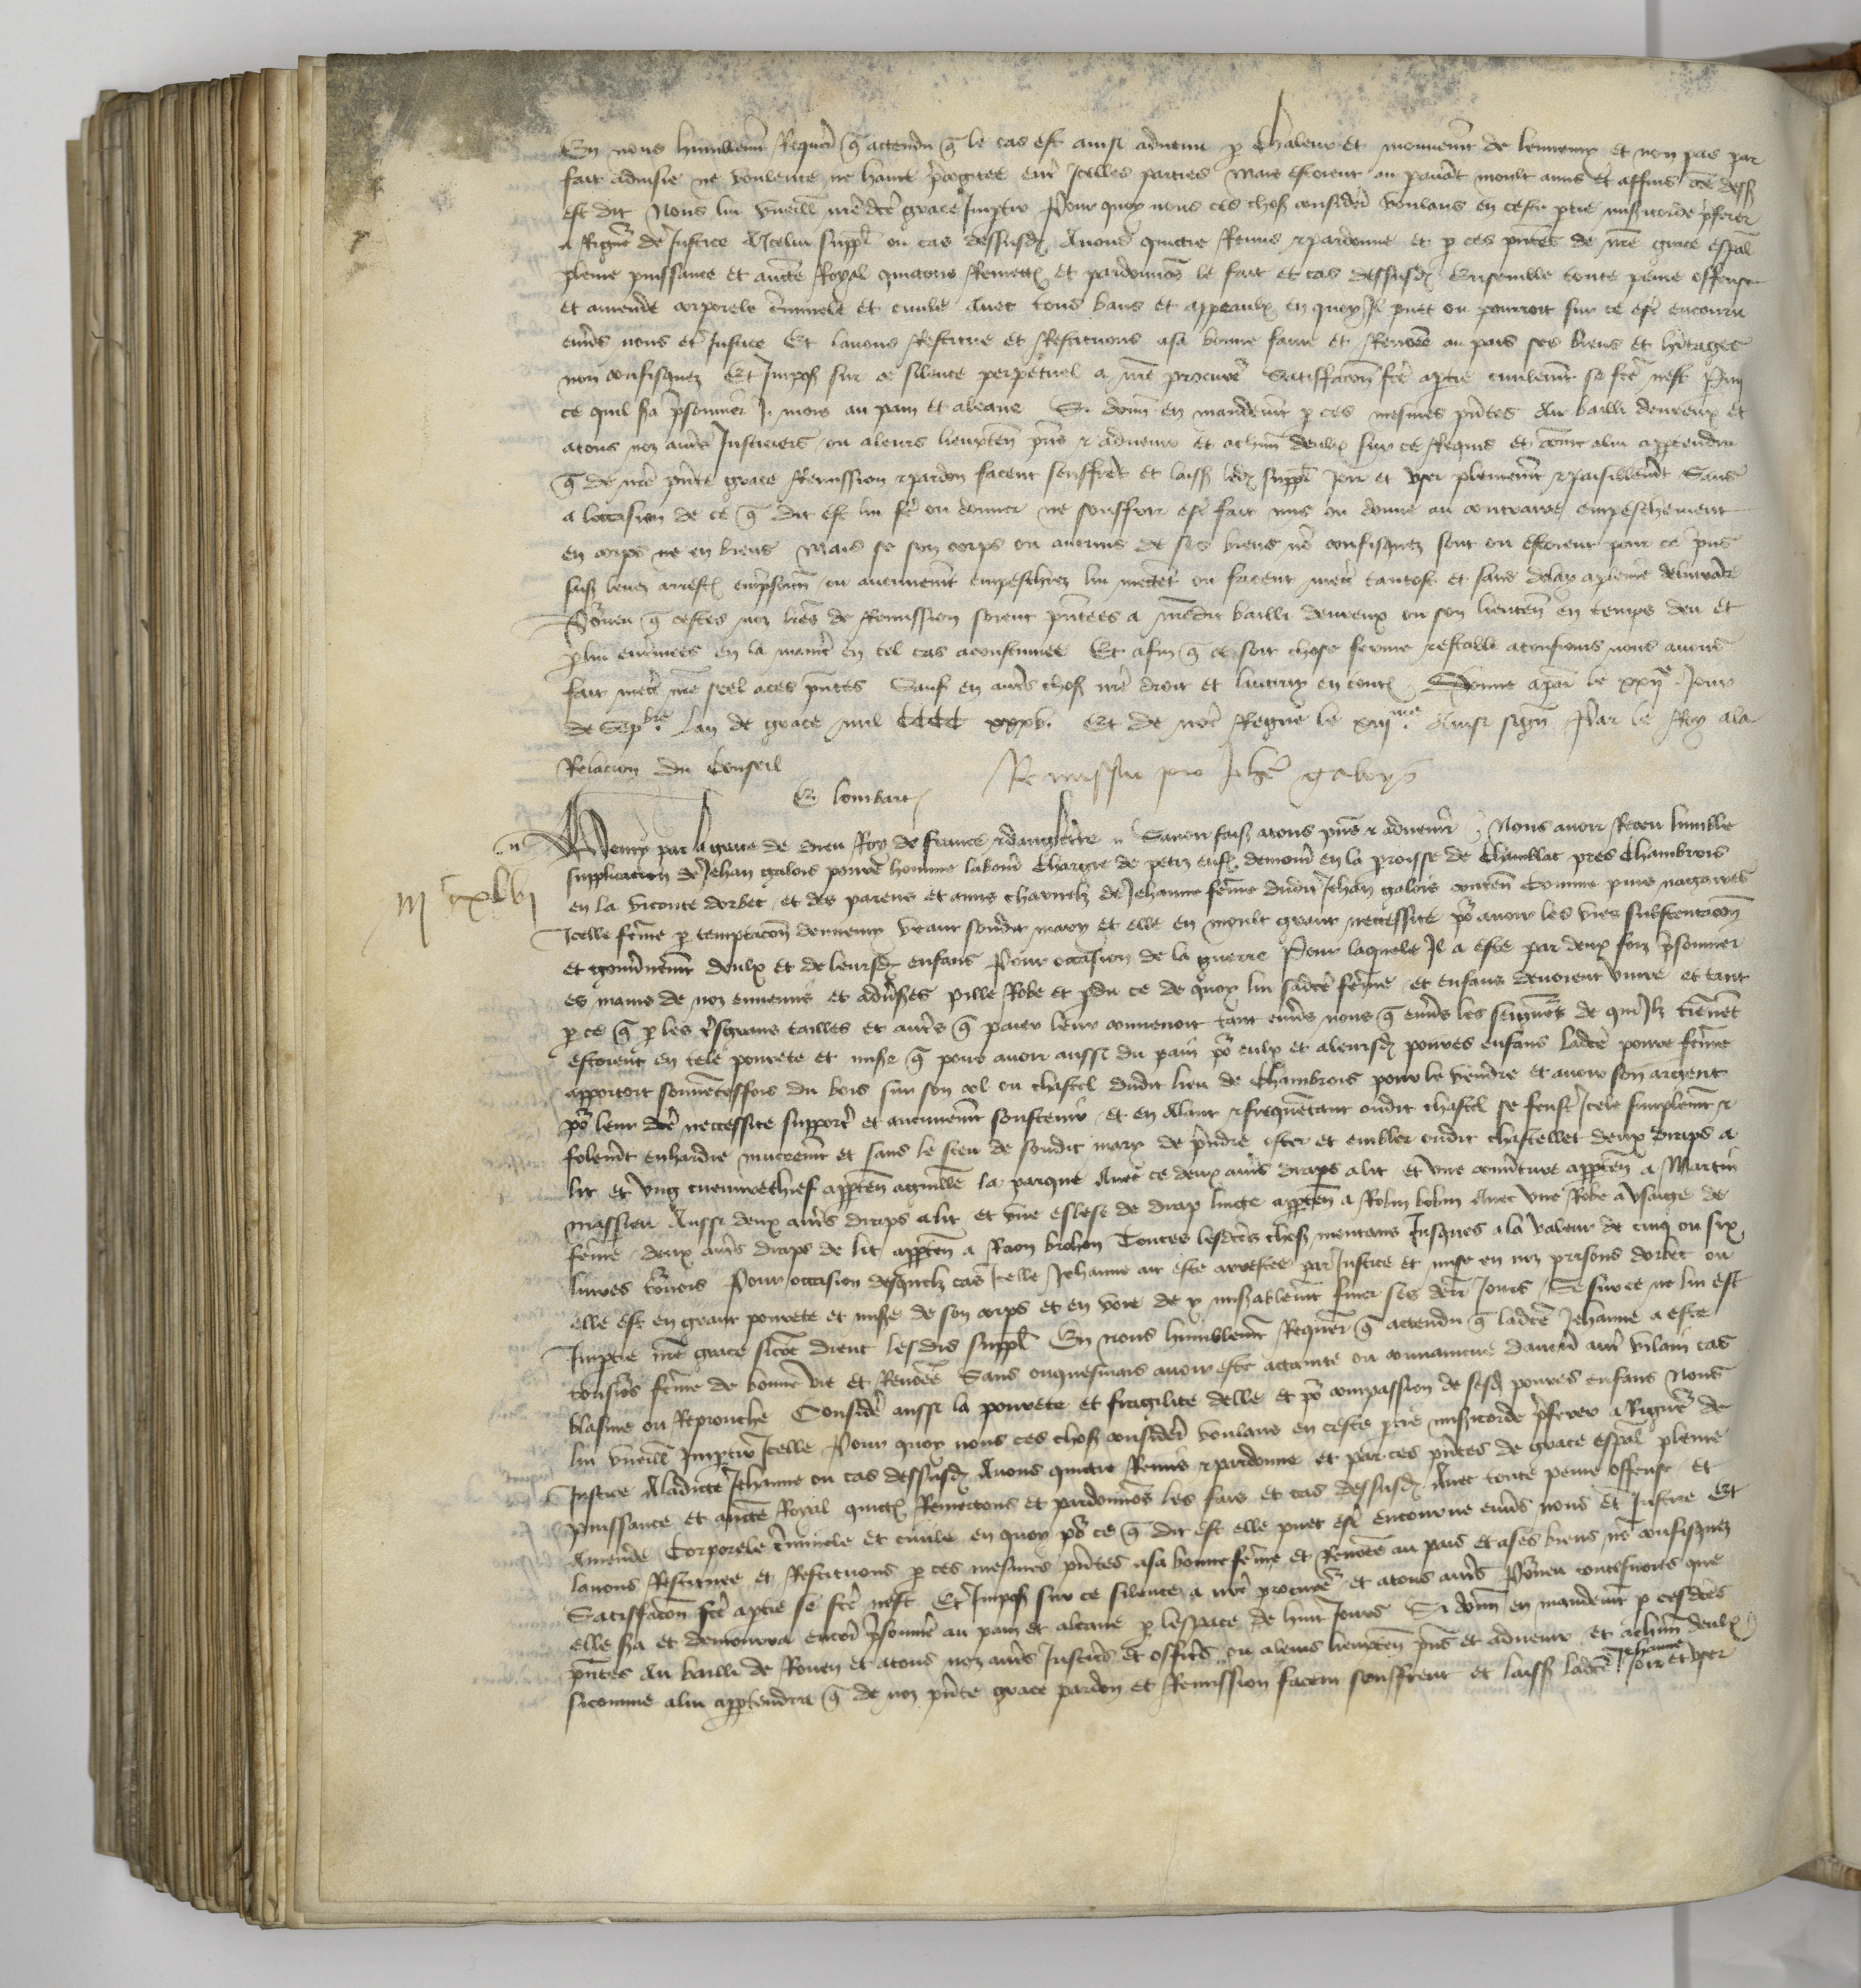 En nous humblemt Requert q attendu q le cas est ainsi advenu p chaleur et mouvemt de lennemy et non pas par
fait advisie ne voulente ne hayne pcogitee entre Icelles parties Mais estoient au pavant moult amis et affins côe dess
est dit Nous lui vueill nre dce grace Impartir Pour quoy nous ces choses considere voulans en ceste ptie misicorde pferer
a Riguer de Justice A Icelui suppl ou cas dessusd Avons quictie Remis & pardonne et p ces pntes de nre grace espal
pleine puissance et aucte Royal quictons Remett et pardonnons le fait et cas dessusd Ensemble toute peine offense
et amende corporele criminele et civile Avec tous bans et appeaulx en quoy Il puet ou pourroit sur ce estre encouru
envs nous et Justice Et lavons Restitue et Restituons a sa bonne fame et Renôee au pais ses biens et hitages
non confisquez Et Impos sur ce silence perpetuel a nre procureur Satisfacon fce a ptie civilemt se fce nest Pmi
ce quil sa psonnier J mois au pain et a leaue Si donn en mandemt p ces mesmes pntes Au bailli devreux et
a tous noz autres Justiciers ou a leurs lieuxten pns & advenir et a chun deulx sur ce Requis et come a lui appartendra
q de nre pnte grace Remission & pardon facent seuffret et laiss led suppl Joir et user plainemt & paisiblemt Sans
a loccasion de ce q dit est lui fe ou donner ne souffrir estre fait mis ou donne au contraire empeschement
en corps ne en biens Mais se son corps ou aucuns de ses biens no confisquez sont ou estoient pour ce pns
saisiz levez arrest empson ou aucunemt empeschiez lui mettet ou facent mect tantost et sans delay a pleine delivrace
Pourveu q cestes noz lres de Remission soient pntees a nredit bailli devreux ou son lieuten en temps deu et
p lui enterinees en la manie en tel cas acoustumee Et afin q ce soit chose ferme & estable a tousiours nous avons
fait mect nre seel a ces pntes Sauf en autres choses nre droit et lautruy en tout Donne a paris le xxije Jour
de Sepbre Lan de grace mil CCCC xxxv. Et de nre Regne le xiijme Ainsi signe Par le Roy a la
Relacion du Conseil
G lombart
Remissio pro Johe galoys
Henry par la grace de dieu Roy de france & dangletre Savoir fais a tous pns & advenir Nous avoir Receu lumble
supplicacion de Jehan galois povre homme labour Chargie de petiz enfs demour en la proisse de Chamblac pres Chambrois
en la viconte dorbec et des parens et amis charnelz de Jehanne feme dudit Jehan galois conten Comme puis nagaires
IIIcxlvi
Icelle feme p temptacon dennemy veant sondit mary et elle en moult grant necessite po avoir les vies substentacon
et gouvnemt deulx et de leursd enfans Pour occasion de la guerre Pour laquele Il a este par deux foiz psonnier
es mains de noz ennemis et advsses pille Robe et pdu ce de quoy lui sadce feme et enfans devoient vivre et tant
p ce q p les tsgrans tailles et autres q paier leur convenoit tant envs nous q envs les seigneurs de qui Ilz tiennet
estoient en tele povrete et mise q pour avoir aussi du pain po eulx et a leursd povres enfans ladce povre feme
apportoit souventesfois du bois sur son col ou chastel dudit lieu de Chambrois pour le vendre et avoir son argent
po leur dce necessite support et aucunemt soustenir et en alant & frequetant oudit chastel se feust Icele simplemt &
folemt enhardie mucemt et sans le sceu de sondit mary de pndre oster et embler oudit chastellet deux draps a
lit et ung cuevrechief apparten a guille la parque Avec ce deux autres draps a lit et une couverture apparten a Martin
massieu Aussi deux autres draps a lit et une eslese de drap linge apparten a Robin bobin Avec une Robe a usaige de
feme deux autres draps de lit apparten a Raon brohon Toutes lesdces choses montans Jusques a la valeur de cinq ou six
livres tournois Pour occasion desquelz cas Icelle Jehanne ait este arrestee par Justice et mise en noz prisons dorbec ou
elle est en grant povrete et mise de son corps et en voie de y misablemt finer ses dern Jours Se sur ce ne lui est
Impartie nre grace sicoe dient lesdis suppl En nous humblemt Requer q attendu q ladce Jehanne a este
tousios feme de bonne vie et Renôee Sans oncquesmais avoir este actainte ou convaincue daucun autre vilain cas
blasme ou Reprouche Considere aussi la povrete et fragilite delle et po compassion de sesd povres enfans Nous
lui vueill Impartir Icelle Pour quoy nous ces choses considere voulans en ceste ptie misicorde pferer a Riguer de
Justice A ladicte Jehanne ou cas dessusd Avons quictie Remis & pardonne et par ces pntes de grace espal pleine
puissance et aucte Royal quict Remectons et pardonnos les fais et cas dessusd Avec toute peine offense et
Amende Corporele criminele et civile en quoy po ce q dit est elle puet estre encourue envs nous et Justice Et
lavons Restituee et Restituons p ces mesmes pntes a sa bonne feme et Renomee au pais et a ses biens no confisquez
Satisfacon fce a ptie se fce nest Et Impos sur ce silence a nre procureur et a tous autres Pourveu toutesvoies que
elle sa et demourra encore psonnie au pain et a leaue p lespace de huit Jours Si donn en mandemt p cesdces
pntes Au bailli de Rouen et a tous noz autres Justicrs et officrs ou a leurs lieuxten pns et advenir et a chun deulx
sicomme a lui appartendra q de noz pnte grace pardon et Remission facent seuffrent et laiss ladce Jehanne Joir et user